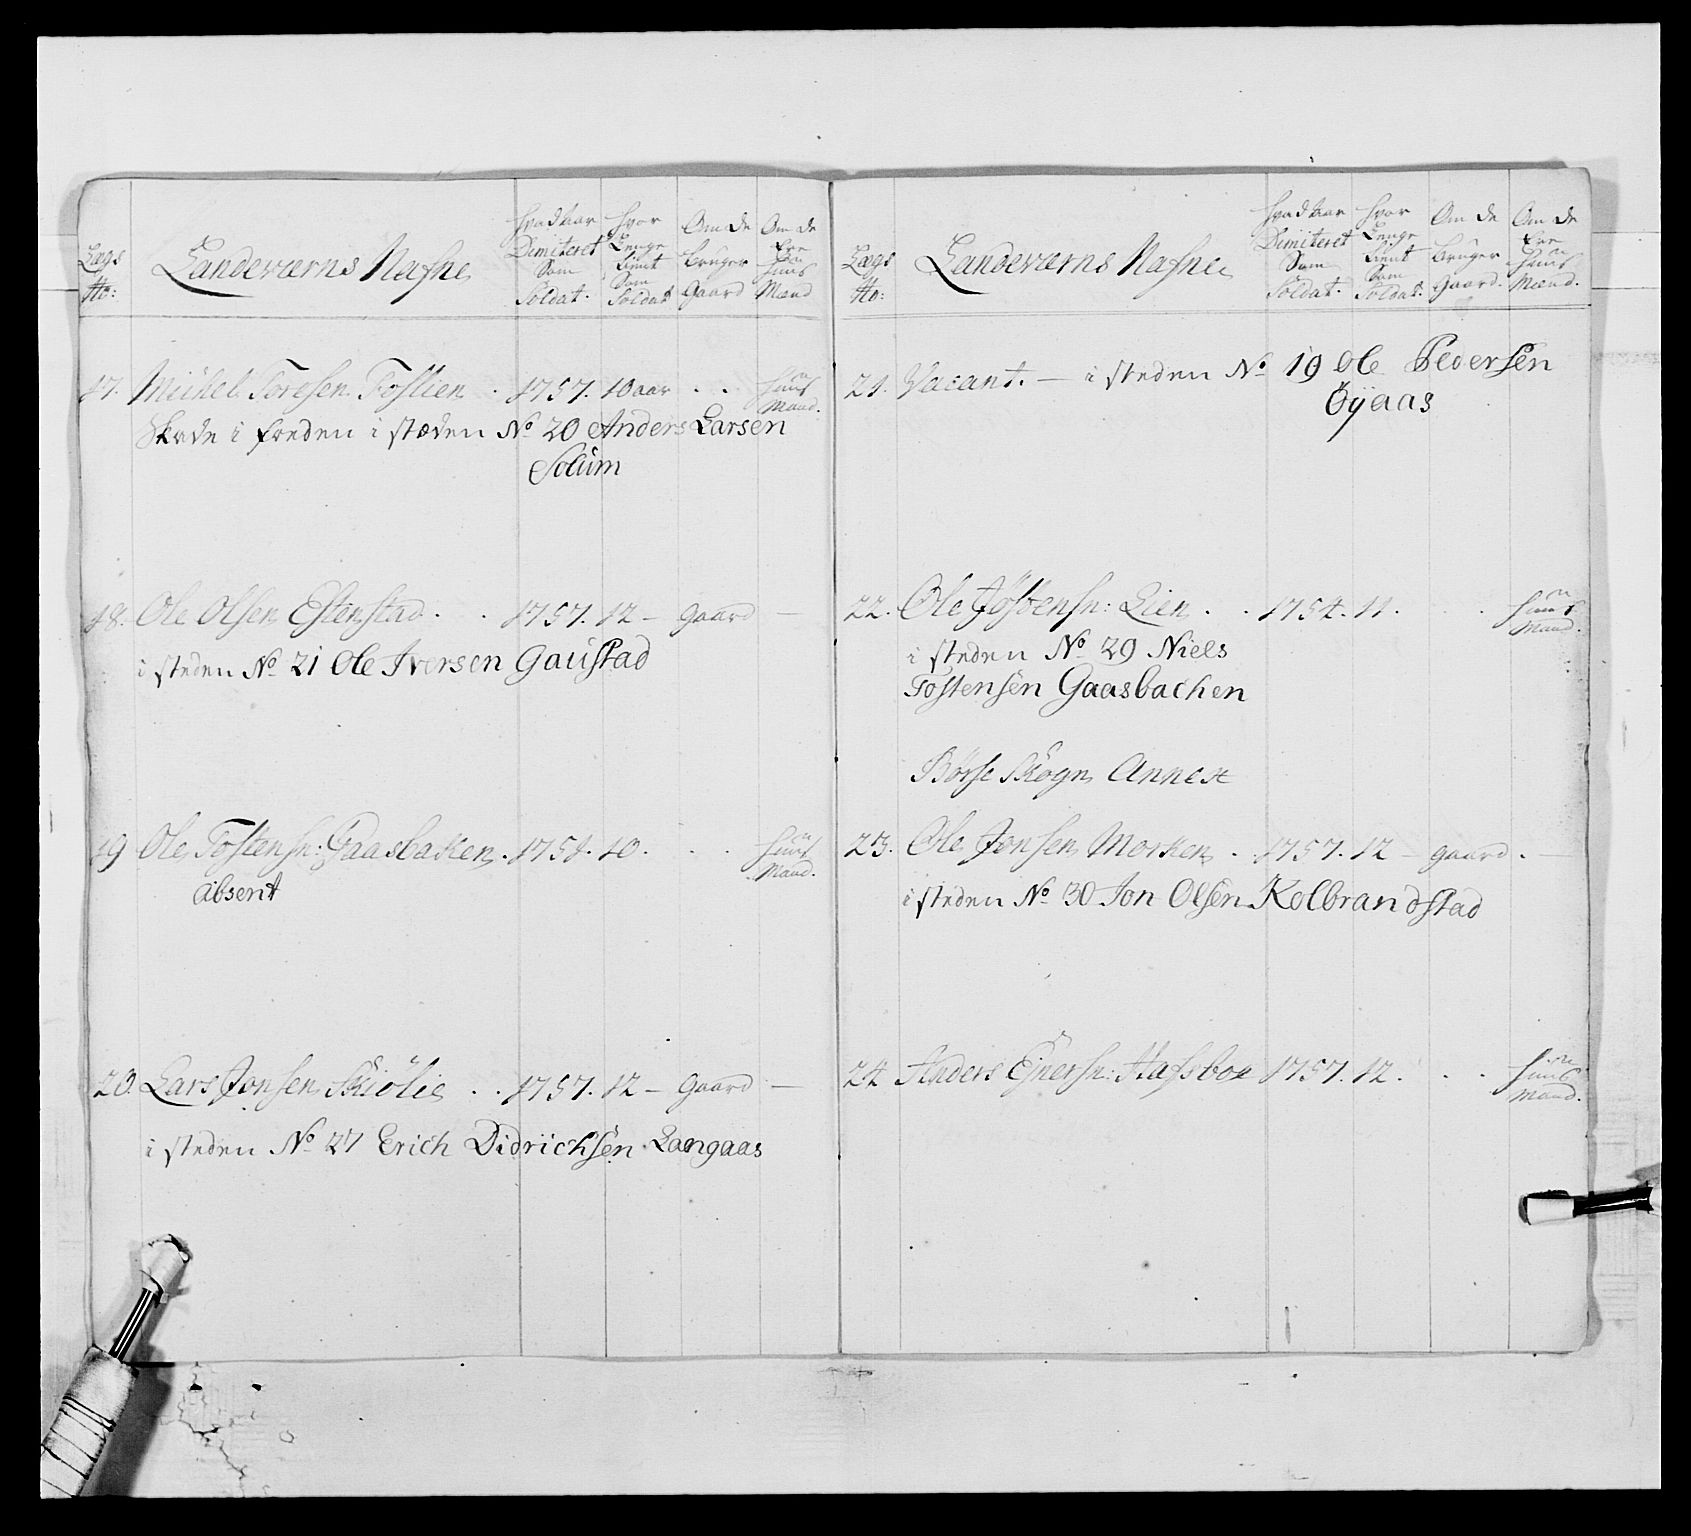 Lægs No:
Landeværns Nafne
Hvad aar Dimiteret Som Soldat.
Hvor Lenge Tient Som Soldat
Om de bruger Gaard
Om de Ere Huus Mænd
17. Michel Toresen Foslien . 1757. 10 aar . . Huus Mand.
i freden i stæden No 20 Anders Larsen
Solum
18. Ole Olsen Estenstad . . 1757. 12 – Gaard –
i steden No 21 Ole Iversen Gaustad
19 Ole Tostensn: Gaasbaken . 1754. 10. . . Huus Mand.
absent
20. Lars Jonsen Skiölie . . 1757. 12 – Gaard –
i steden No 27 Erich Didrichsen Langaas
Lægs No:
Landeværns Nafne
Hvad aar Dimiteret Som Soldat.
Hvor Lenge Tient Som Soldat.
Om de bruger Gaard.
Om de Ere Huus Mænd.
21. Vacant. – i steden No 19 Ole Pedersen
Öyaas
22. Ole Jöstensn: Lien . . 1754. 11. . . Huus Mand.
i steden No 29 Niels
Tostensen Gaasbachen
Börse Skogn Annex
23. Ole Jonsen Morken . 1757. 12 – gaard . –
i steden No 30 Jon Olsen Kolbrandstad
24 Anders Ejnersn: Hafsboe 1757. 12. . . Huus Mand.